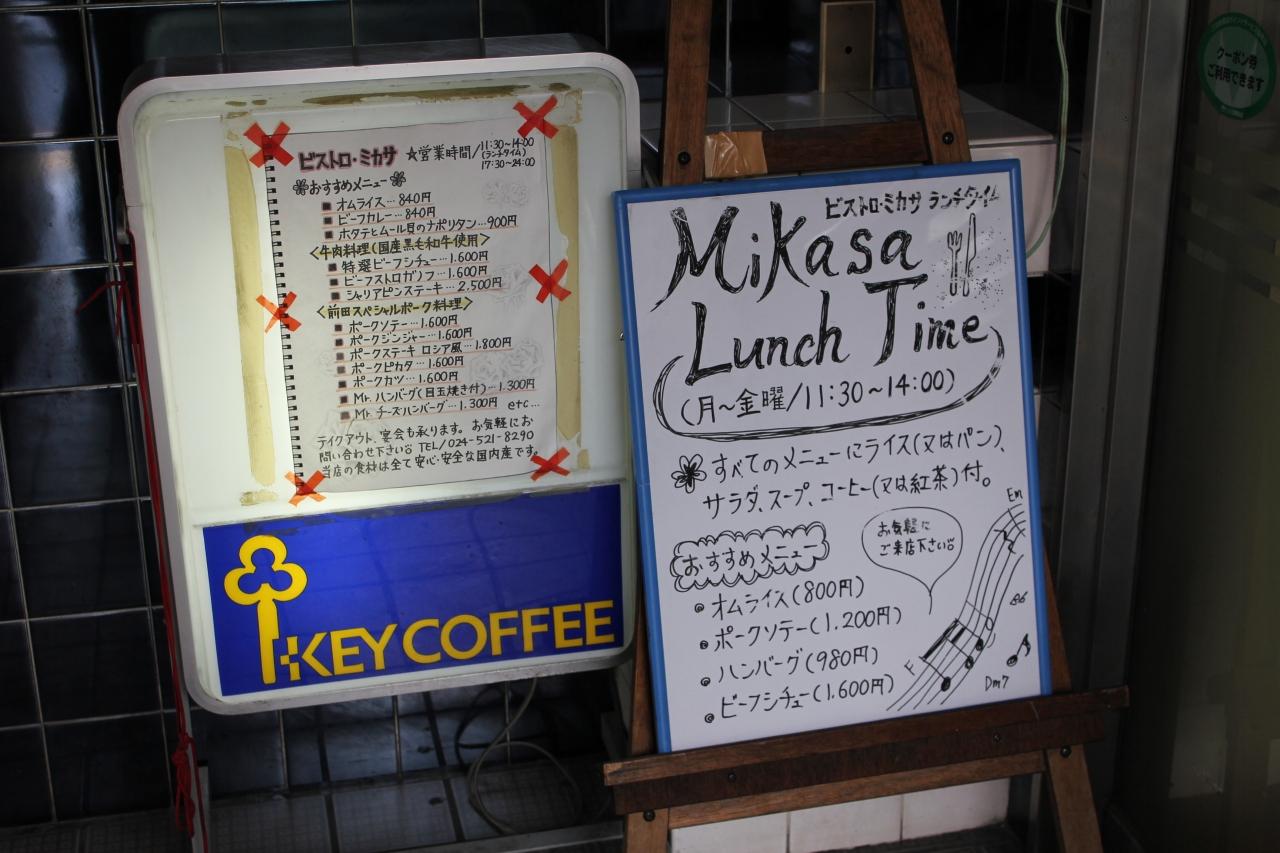 ビストロ・ミカサ ☆営業時間/11:30~14:00
(ランチタイム)
17:30~24:00
おすすめメニュー
オムライス…840円
ビーフカレー…840円
ホタテとムール貝のナポリタン…900円
<牛肉料理(国産黒毛和牛使用)>
特選ビーフシチュー…1.600円
ビーフストロガノフ…1.600円
シャリアピンステーキ…2,500円
<前田スペシャルポーク料理>
ポークソテー…1.600円
ポークジンジャー…1.600円
ポークステーキ ロシア風…1.800円
ポークピカタ…1.600円
ポークカツ…1.600円
Mr. ハンバーグ(目玉焼き付)…1.300円
Mr. チーズハンバーグ…1.300円 etc...
テイクアウト、宴会も承ります。お気軽にお
問い合わせ下さい TEL/024-521-8290
当店の食材は全て安心・安全な国内産です。
KEY COFFEE
ビストロ・ミカサ ランチタイム
Mikasa
Lunch Time
(月~金曜/11:30~14:00)
すべてのメニューにライス(又はパン)、
サラダ、スープ、コーヒー(又は紅茶)付。
おすすめメニュー
お気軽に
ご来店下さい
オムライス(800円)
ポークソテー(1.200円)
ハンバーグ(980円)
ビーフシチュー(1.600円)
Em
F
Dm7
クーポン券
ご利用できます